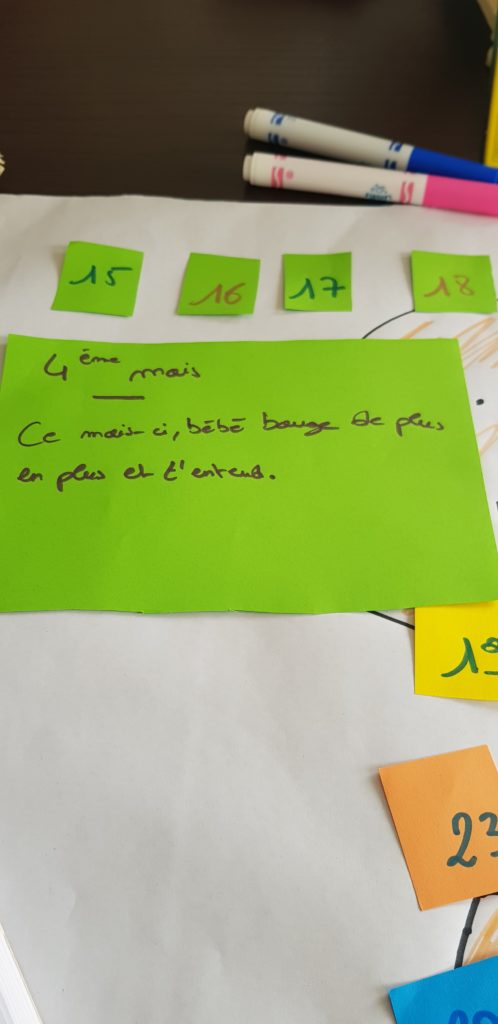 15 16 17 18
4ème mois
Ce mois-ci, bébé bouge de plus
en plus et t'entend.
19
23